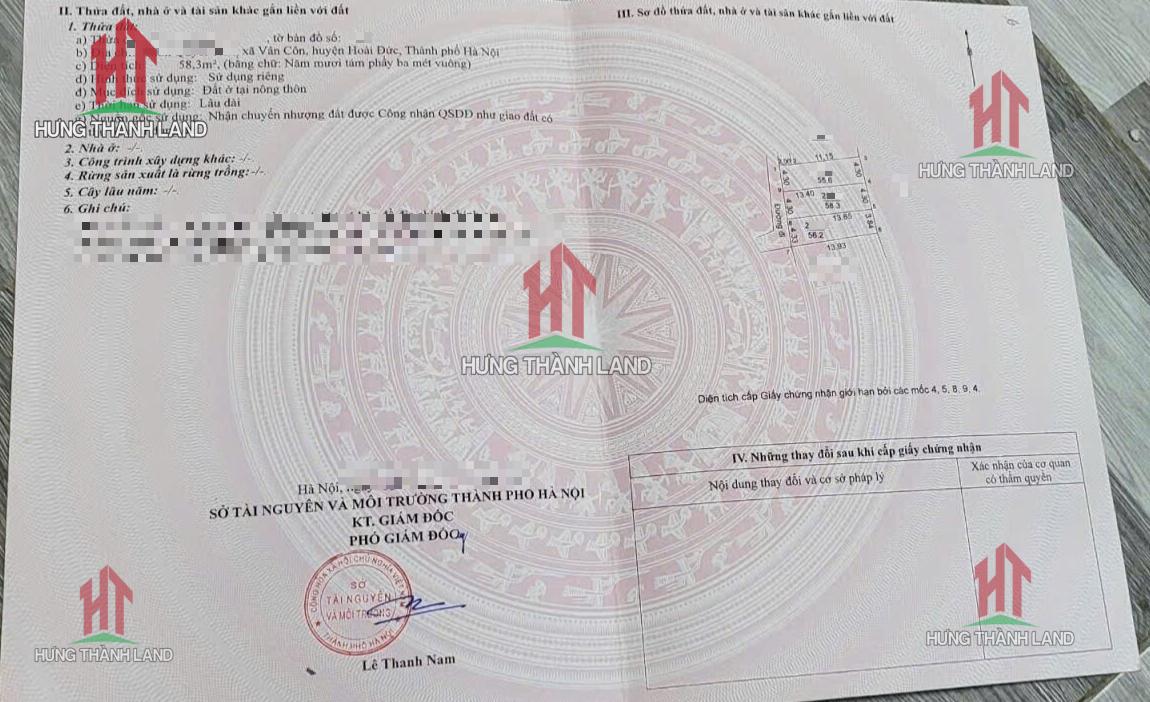 II. Thửa đất, nhà ở và tài sản khác gắn liền với đất
1. Thửa đất:
a) Thửa , tờ bản đồ số:
b) xã Vân Côn, huyện Hoài Đức, Thành phố Hà Nội
c) Diện tích 58,3m², (bằng chữ: Năm mươi tám phẩy ba mét vuông)
d) Hình thức sử dụng: Sử dụng riêng
đ) Mục đích sử dụng: Đất ở tại nông thôn
e) Thời hạn sử dụng: Lâu dài
g) Nguồn gốc sử dụng: Nhận chuyển nhượng đất được Công nhận QSDĐ như giao đất có
2. Nhà ở: -/-.
3. Công trình xây dựng khác: -/-.
4. Rừng sản xuất là rừng trồng: -/-.
5. Cây lâu năm: -/-.
6. Ghi chú:
Hà Nội,
SỞ TÀI NGUYÊN VÀ MÔI TRƯỜNG THÀNH PHỐ HÀ NỘI
KT. GIÁM ĐỐC
PHÓ GIÁM ĐỐC
CỘNG HÒA XÃ HỘI CHỦ NGHĨA VIỆT
SỞ
TÀI NGUYÊN
VÀ MÔI TRƯỜNG
THÀNH PHỐ HÀ NỘI
Lê Thanh Nam
III. Sơ đồ thửa đất, nhà ở và tài sản khác gắn liền với đất
11,15
4.50
4.50
55.6
13.40
2
4.30
58.3
4.30
13.65
Đường đi
2
4.33
3.84
56.2
13.93
Diện tích cấp Giấy chứng nhận giới hạn bởi các mốc 4, 5, 8, 9, 4.
IV. Những thay đổi sau khi cấp giấy chứng nhận
Nội dung thay đổi và cơ sở pháp lý
Xác nhận của cơ quan
có thẩm quyền
HT
HƯNG THÀNH LAND
HT
HƯNG THÀNH LAND
HT
HƯNG THÀNH LAND
HT
HƯNG THÀNH LAND
HT
HƯNG THÀNH LAND